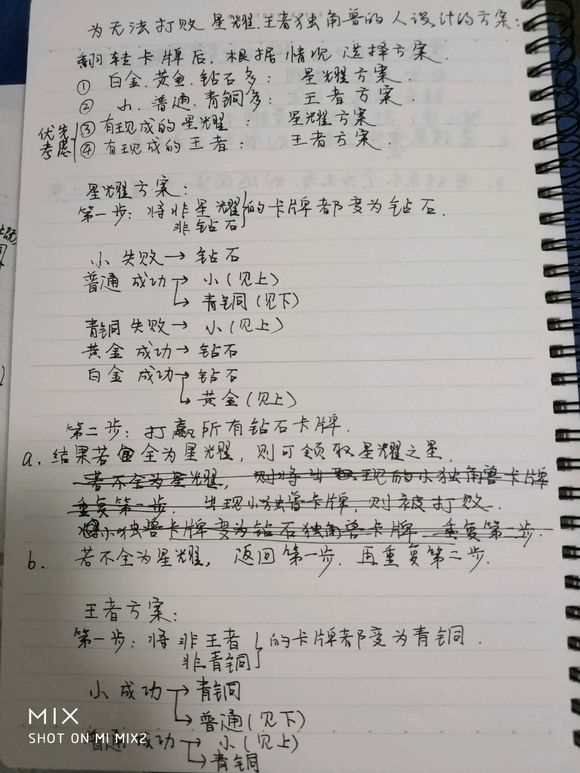 为无法打败星耀、王者独角兽的人设计的方案:
翻转卡牌后,根据情况选择方案.
① 白金、黄金、钻石多: 星耀方案.
② 小、普通、青铜多: 王者方案.
优先考虑 ③ 有现成的星耀: 星耀方案
④ 有现成的王者: 王者方案.
星耀方案:
第一步: 将非星耀 非钻石}的卡牌都变为钻石.
小 失败→钻石
普通 成功→小(见上)
→青铜(见下)
青铜 失败→小(见上)
黄金 成功→钻石
白金 成功→钻石
→黄金(见上)
第二步: 打赢所有钻石卡牌.
a. 结果若全为星耀, 则可领取星耀之星.
若不全为星耀, 则将出现的小独角兽卡牌
重复第一步. 出现小独兽卡牌, 则被打败.
小独兽卡牌变为钻石独角兽卡牌, 重复第一步.
b. 若不全为星耀, 返回第一步. 再重复第二步.
王者方案:
第一步: 将非王者 非青铜}的卡牌都变为青铜.
小 成功→青铜
→普通(见下)
普通 成功→小(见上)
→青铜
MIX
SHOT ON MI MIX2